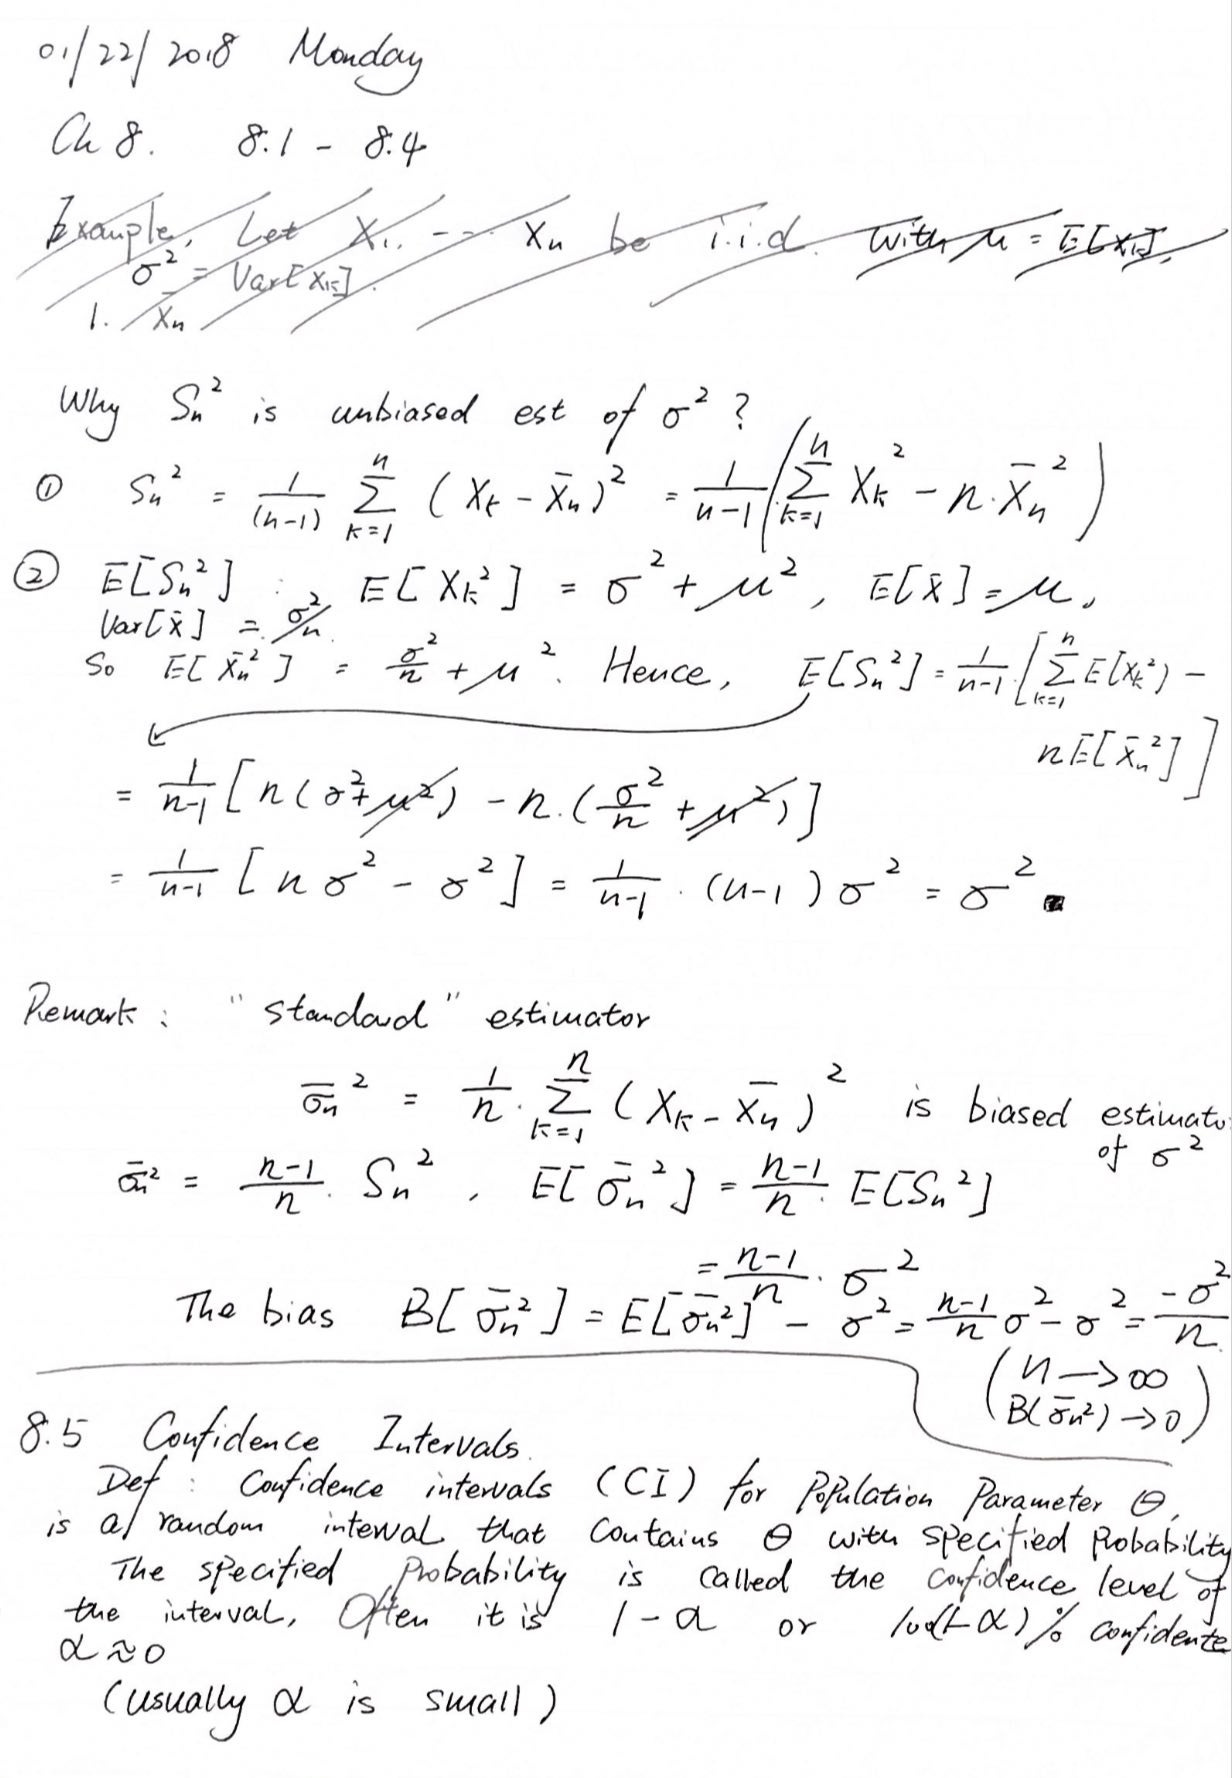 01/22/2018 Monday
Ch 8. 8.1 - 8.4
Example, Let X₁, --- Xₙ be i.i.d. with μ = E[Xₖ],
σ² = Var[Xₖ].
1. Xₙ
Why Sₙ² is unbiased est of σ² ?
① Sₙ² = 1/(n-1) Σₖ₌₁ⁿ (Xₖ - X̄ₙ)² = 1/(n-1) (Σₖ₌₁ⁿ Xₖ² - n·X̄ₙ²)
② E[Sₙ²] : E[Xₖ²] = σ² + μ², E[X̄] = μ,
Var[X̄] = σ²/n.
So E[X̄ₙ²] = σ²/n + μ². Hence, E[Sₙ²] = 1/(n-1) [Σₖ₌₁ⁿ E(Xₖ²) -
nE[X̄ₙ²]]
= 1/(n-1) [n(σ²+μ²) - n·(σ²/n + μ²)]
= 1/(n-1) [nσ² - σ²] = 1/(n-1) · (n-1)σ² = σ² ■
Remark : "standard" estimator
σ̄ₙ² = 1/n · Σₖ₌₁ⁿ (Xₖ - X̄ₙ)² is biased estimato
of σ²
σ̄ₙ² = (n-1)/n · Sₙ², E[σ̄ₙ²] = (n-1)/n · E[Sₙ²]
= (n-1)/n · σ²
The bias B[σ̄ₙ²] = E[σ̄ₙ²] - σ² = (n-1)/n σ² - σ² = -σ²/n
(n → ∞
B(σ̄ₙ²) → 0)
8.5 Confidence Intervals.
Def : Confidence intervals (CI) for Population Parameter θ,
is a random interval that contains θ with specified Probability
The specified Probability is called the confidence level of
the interval, Often it is 1 - α or 100(1-α)% confidente
α ≈ 0
(usually α is small)